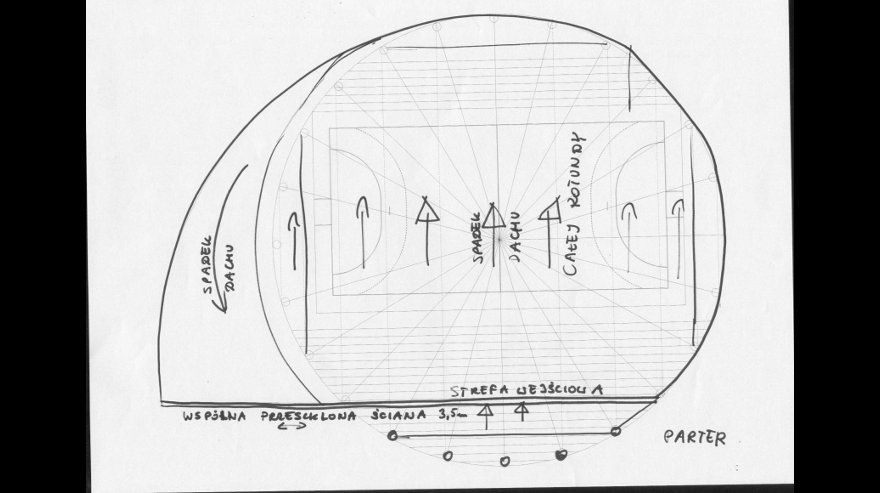 SPADEK
DACHU
SPADEK
DACHU
CAŁEJ ROTUNDY
STREFA WEJŚCIOWA
WSPÓLNA PRZESZKLONA ŚCIANA 3,5m
PARTER